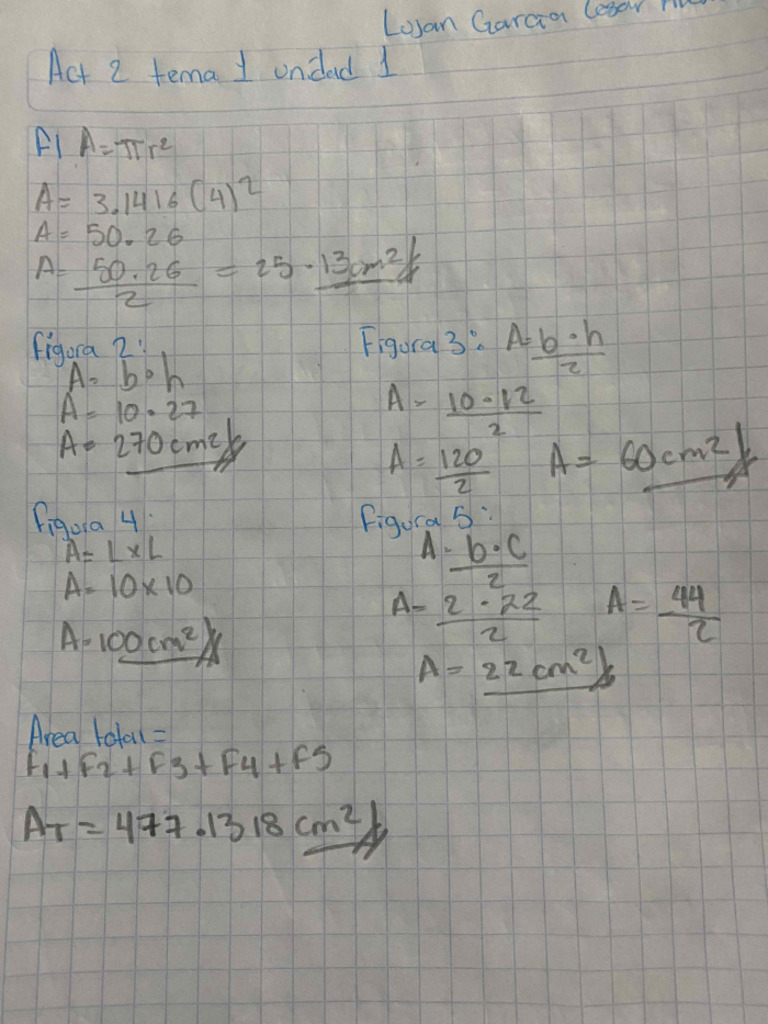 Lujan Garcia Cesar
Act 2 tema 1 unidad 1
F1 A=πr²
A= 3.1416(4)²
A= 50.26
A= 50.26/2 = 25.13cm²
figura 2:
A= b·h
A= 10·27
A= 270cm²
Figura 3: A= b·h/2
A= 10·12/2
A= 120/2 A= 60cm²
figura 4:
A= L×L
A= 10×10
A= 100cm²
Figura 5:
A= b·C/2
A= 2·22/2 A= 44/2
A= 22cm²
Area total=
F1+F2+F3+F4+F5
AT = 477.1318 cm²